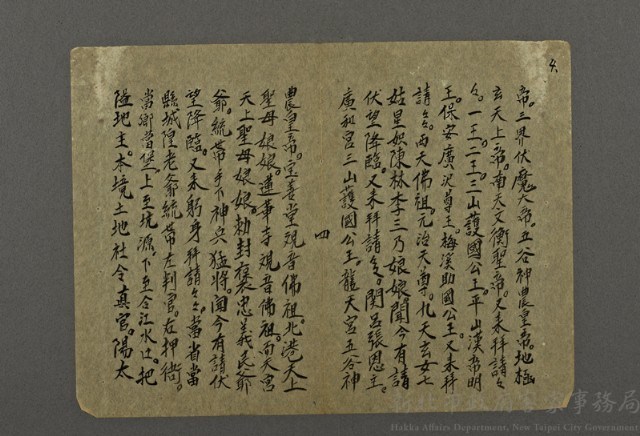 4
帝。三界伏魔大帝。五谷神農皇帝。地極
玄天上帝。南天文衡聖帝。又来拜請々
々。一王。二王。三山護國公王。平山漢帝明
王。保安廣沢尊王。梅溪助國公王又来拜
請々。西天佛祖。元治天尊。九天玄女七
姑星娘陳林李三乃娘娘聞今有請
伏望降臨。又来拜請々。関呂張恩主。
廣和宮三山護國公王。龍天宮五谷神
四
農皇帝。宝善堂观音佛祖。北港天上
聖母娘娘。蓮華寺观音佛祖。西天宮
天上聖母娘娘。勅封褒忠義民爺
爺。統帶手下神兵猛将。聞今有請伏
望降臨。又来躬身拜請々。當省當
縣城隍老爺統帶左判官。右押衙。
當鄉當堡上至坑源下至合江水口。把
隘地主。本境土地社令真官。陽太
客家事務局
Hakka Affairs Department, New Taipei City Government